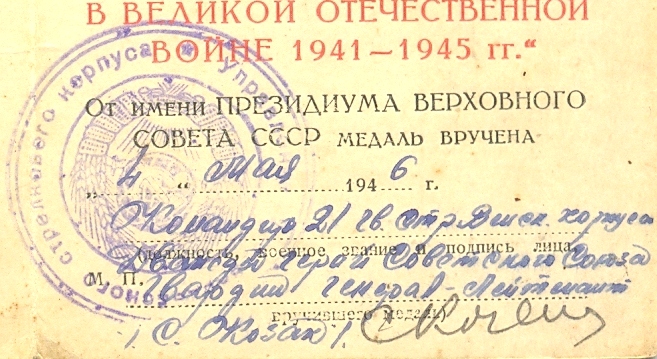 В ВЕЛИКОЙ ОТЕЧЕСТВЕННОЙ
ВОЙНЕ 1941—1945 гг.“
От имени ПРЕЗИДИУМА ВЕРХОВНОГО
СОВЕТА СССР МЕДАЛЬ ВРУЧЕНА
„4“ мая 1946 г.
Командир 21 гв. стр. корпуса
(должность, военное звание и подпись лица,
Дважды Герой Советского Союза
М. П. Гвардии Генерал-Лейтенант
вручившего медаль)
/ С. Козак /
стрелкового корпуса * Управл